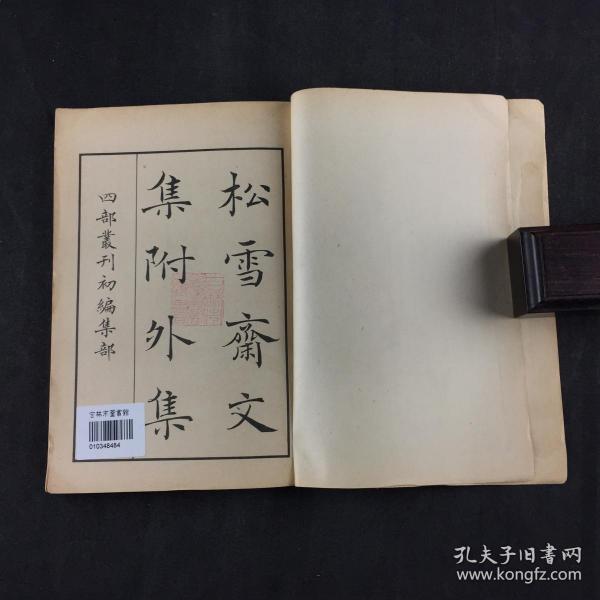 松雪齋文
集附外集
四部叢刊初編集部
吉林市圖書館
010348484
孔夫子旧书网
www.kongfz.com